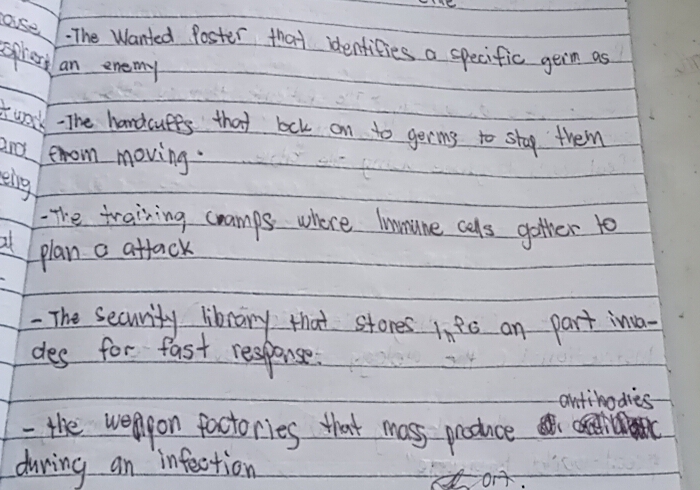 -The Wanted Poster, that identifies a specific germ as
an enemy
-The handcuffs that lock on to germs to stop them
from moving.
-The training camps where Immune cells gather to
plan a attack
- The security library that stores info on part inva-
des for fast response.
antibodies
- the weapon factories that mass produce
during an infection